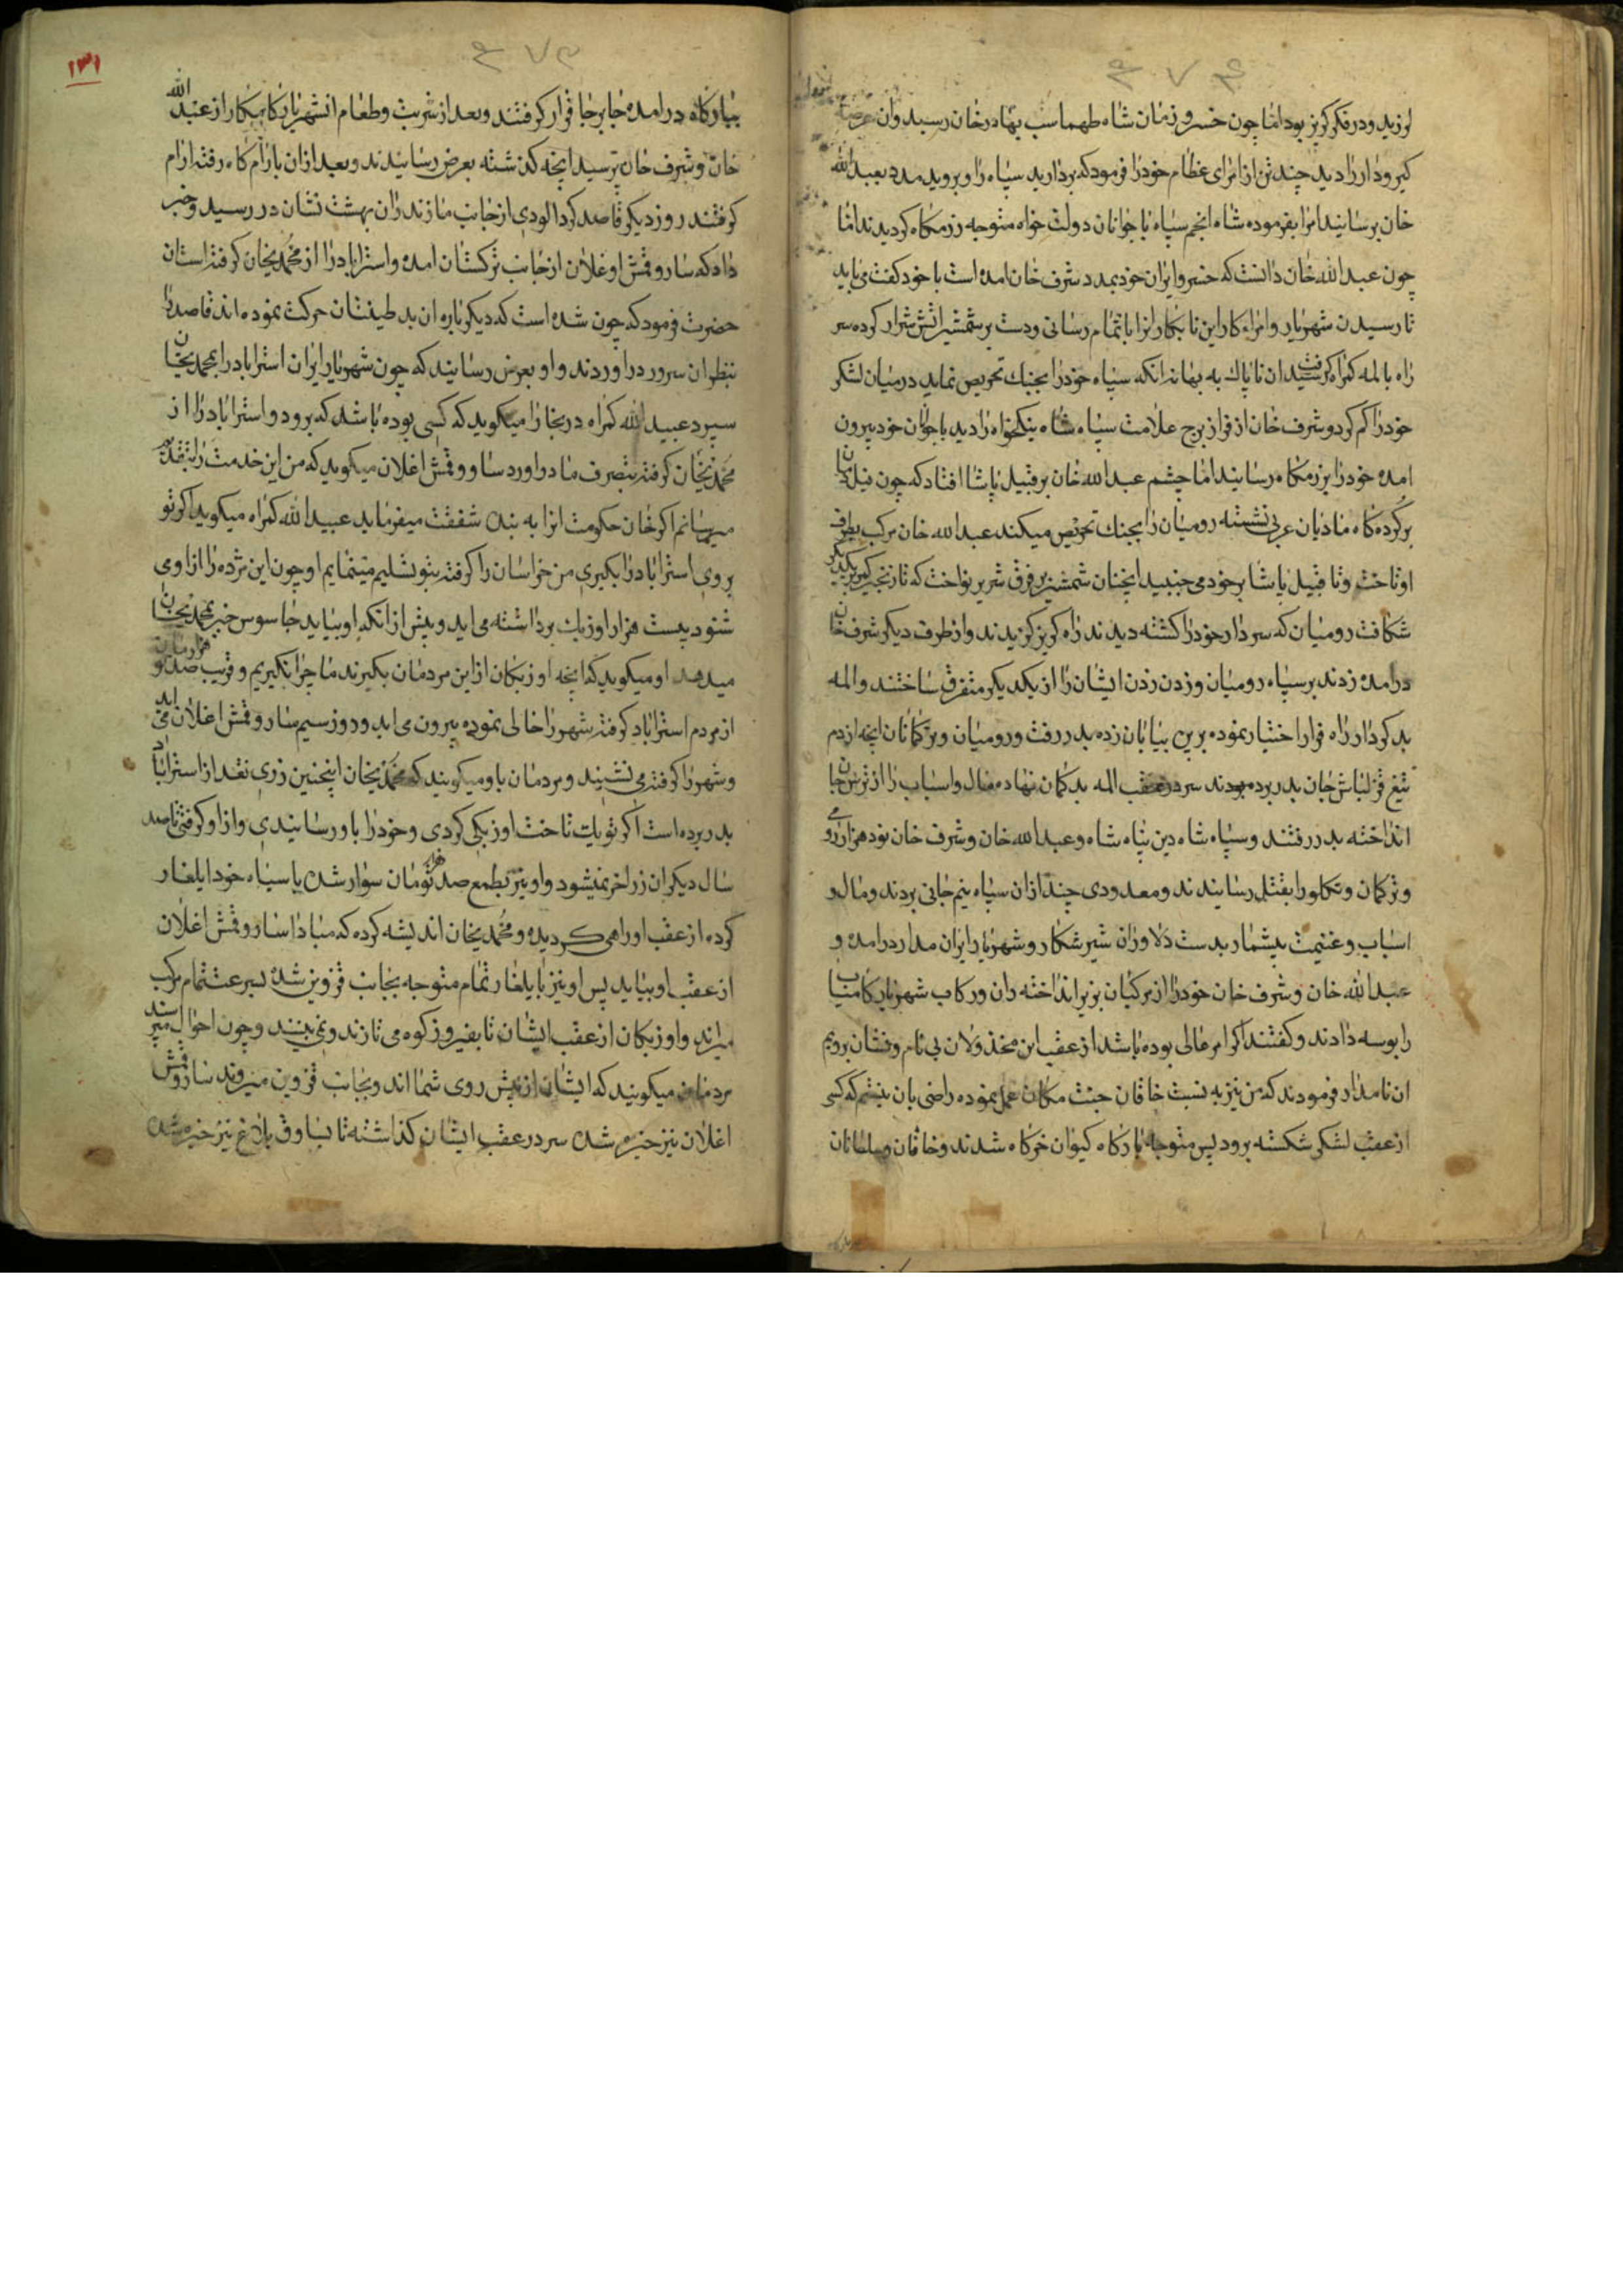 لرزید و در فکر کریز بود اما چون خسرو زمان شاه طهماسب بهادر خان رسید وان عرصه
کیر و دار را دید چند تن از امرای عظام خود را فرمود که بردارید سپاه را و بروید مدد بعبد الله
خان برسانید امرا بفرموده شاه انجم سپاه با جوانان دولت خواه متوجه رزمکاه کردیدند اما
چون عبد الله خان دانست که خسرو ایران خود بمدد شرف خان امده است با خود کفت می باید
تا رسیدن شهریار و امراء کار این نابکار انرا باتمام رسانی و دست بر شمشیر اتش شرار کرده سر
راه بالمه کمراه کرفتند ان ناپاک به بهانه انکه سپاه خود را بجنک تحریص نماید در میان لشکر
خود را کم کرد و شرف خان از فراز برج علامت سپاه شاه نیکخواه را دید با جوانان خود بیرون
امده خود را برزمکاه رسانید اما چشم عبد الله خان بر قبیل پاشا افتاد که چون فیل
بر کرده کاه مادیان عربی نشسته رومیان را بجنک تحریص میکند عبد الله خان مرکب بطرف
او تاخت و تا قبیل پاشا بر خود می جنبید انچنان شمشیر بر فرق شریر نواخت که تا زنجیر کمر یکدیکر
شکافت رومیان که سردار خود را کشته دیدند راه کریز کزیدند و از طرف دیکر شرف خان
درامده زدند بر سپاه رومیان و زدن زدن ایشان را از یکدیکر متفرق ساختند و المه
بد کردار راه فرار اختیار نموده برین بیابان زده بدر رفت و رومیان و ترکمانان انچه از دم
تیغ قزلباش جان بدر برده بودند سر در عقب المه بد کمان نهاده مال و اسباب را از ترس جان
انداخته بدر رفتند و سپاه شاه دین پناه شاه و عبد الله خان و شرف خان نود هزار رومی
و ترکمان و تکلو را بقتل رسانیدند و معدودی چند ازان سپاه نیم جانی بردند و مال و
اسباب و غنیمت بیشمار بدست دلاوران شیر شکار و شهریار ایران مدار درامده و
عبد الله خان و شرف خان خود را از مرکبان بزیر انداخته ران و رکاب شهریار کامیاب
را بوسه دادند و کفتند اکر امر عالی بوده باشد از عقب این مخذولان بی نام و نشان برویم
ان نامدار فرمودند که من نیز به نسبت خاقان جنت مکان عمل نموده راضی بان نیستم که کسی
از عقب لشکر شکسته برود پس متوجه بارکاه کیوان خرکاه شدند و خاقان و سلطانان
۱۳۱
ببارکاه درامده جا بر جا قرار کرفتند و بعد از شربت و طعام انشهریار کامکار از عبد الله
خان و شرف خان پرسید انچه کذشته بعرض رسانیدند و بعد ازان بارام کاه رفته ارام
کرفتند روز دیکر قاصد کرد الودی از جانب مازندران بهشت نشان در رسید و خبر
داد که سارو قمش اوغلان از جانب ترکستان امده و استراباد را از محمدیخان کرفته استان
حضرت فرمود که چون شده است که دیکر باره ان بد طینتان حرکت نموده اند قاصد را
بنظر ان سرور دراوردند و او بعرض رسانید که چون شهریار ایران استراباد را بمحمدیخان
سپرد عبید الله کمراه در بخارا میکوید که کسی بوده باشد که برود و استراباد را از
محمدیخان کرفته بتصرف ما دراورد سارو قمش اغلان میکوید که من این خدمت را بتقدیم
میرسانم اکر خان حکومت انرا به بنده شفقت میفرماید عبید الله کمراه میکوید اکر تو
بروی استراباد را بکیری من خراسان را کرفته بتو تسلیم مینمایم او چون این مژده را از اوی
شنود بیست هزار اوزبک برداشته می اید و پیش از انکه او بیاید جاسوس خبر بمحمدیخان
میدهد او میکوید که انچه اوزبکان از این مردمان بکیرند ما چرا نکیریم و قریب صد هزار تومان
از مردم استراباد کرفته شهر را خالی نموده بیرون می اید و روز سیم سارو قمش اغلان می اید
و شهر را کرفته می نشیند و مردمان باو میکویند که محمدیخان اینچنین زری نقد از استراباد
بدر برده است اکر تو یک تاخت اوزبکی کردی و خود را باو رسانیدی و از او کرفتی تا صد
سال دیکر ان زر اخر نمیشود و او نیز بطمع صد هزار تومان سوار شده با سپاه خود ایلغار
کرده از عقب او راهی کردیده و محمدیخان اندیشه کرده که مبادا سارو قمش اغلان
از عقب او بیاید پس او نیز بایلغار تمام متوجه بجانب قزوین شده بسرعت تمام مرکب
میراند و اوزبکان از عقب ایشان تا بفیروز کوه می تازند و نمی بینند و چون احوال میپرسند
مردمان میکویند که ایشان از پیش روی شما اند و بجانب قزوین میروند سارو قمش
اغلان نیز خیره شده سر در عقب ایشان کذاشته تا بساوق بلاغ نیز خیره شده